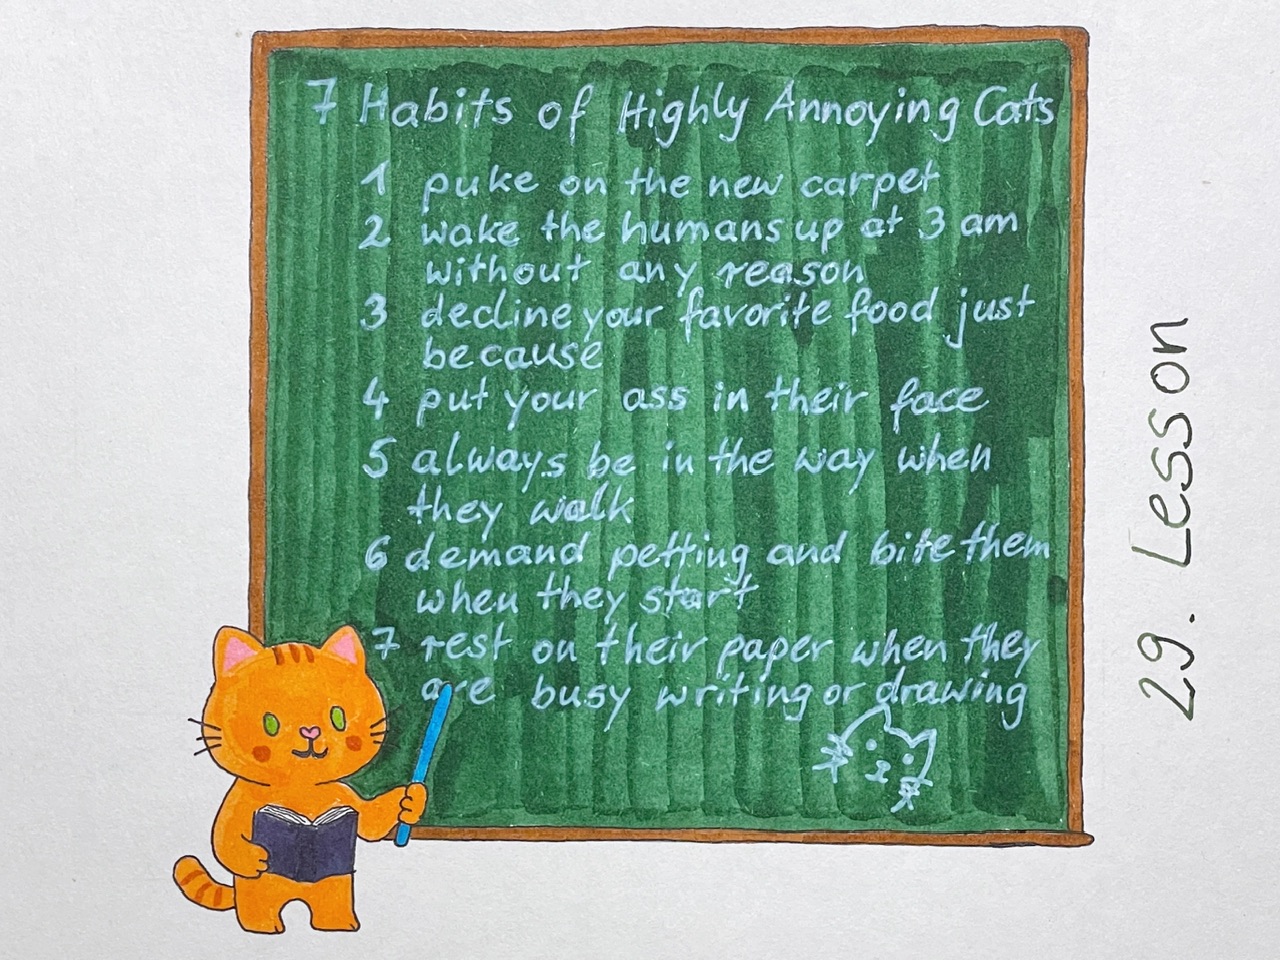 7 Habits of Highly Annoying Cats
1 puke on the new carpet
2 wake the humans up at 3 am
without any reason
3 decline your favorite food just
because
4 put your ass in their face
5 always be in the way when
they walk
6 demand petting and bite them
when they start
7 rest on their paper when they
are busy writing or drawing
29. Lesson